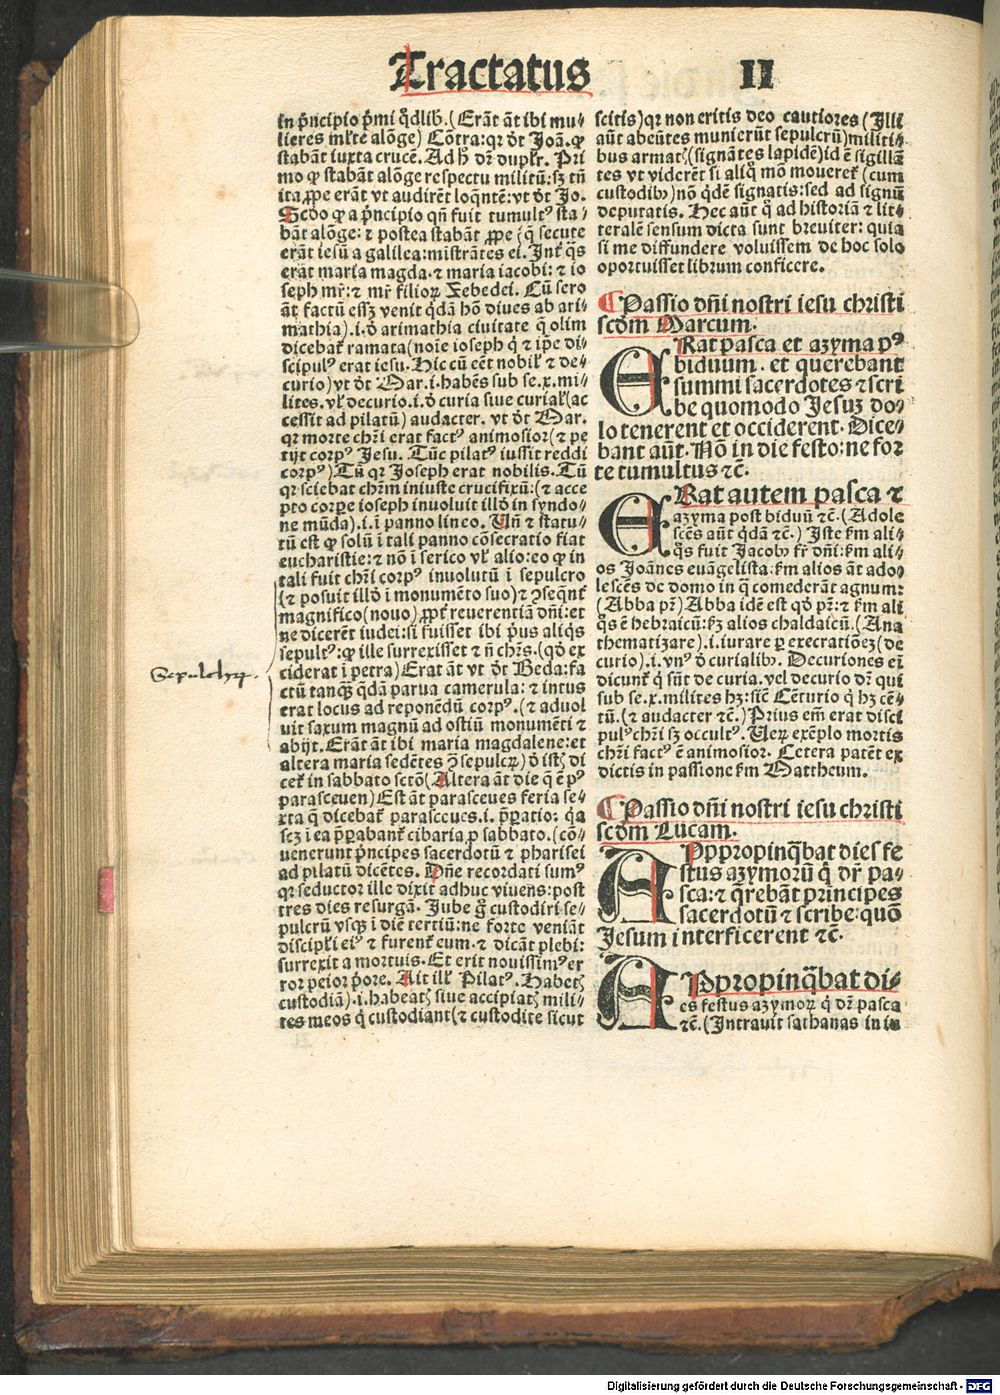 Tractatus II
in p̄ncipio p̄mi q̊dlib̄. (Erāt āt ibi mu⸗
lieres ml̄te alōge) Cōtra: qꝛ ōt Joā. ꝙ
stabāt iuxta crucē. Ad hͦ dr̄ duplr̄. Pri
mo ꝙ stabāt alōge respectu militū: sꝫ tn̄
ita ꝓpe erāt vt audirēt loq̄ntē: vt ōt Jo.
Scd̄o ꝙ a p̄ncipio qn̄ fuit tumultꝰ sta⸗
bāt alōge: ⁊ postea stabāt ꝓpe (q̄ secute
erāt iesū a galilea: mistrātes ei. Int̄ q̄s
erāt maria magda. ⁊ maria iacobi: ⁊ io
seph mr̄: ⁊ mr̄ filioꝝ Zebedei. Cū sero
āt factū essꝫ venit q̇dā hō diues ab ari⸗
mathia). i. ð arimathia ciuitate q̄ olim
dicebat̄ ramata (noīe ioseph q̇ ⁊ ip̄e di⸗
scipulꝰ erat iesu. Hic cū eēt nobil̄ ⁊ de⸗
curio) vt ōt Mar. i. habēs sub se .x. mi⸗
lites. vl̄ decurio. i. ð curia siue curial̄ (ac
cessit ad pilatū) audacter. vt ōt Mar.
qꝛ morte chr̄i erat factꝰ animosior (⁊ pe
tijt corpꝰ Jesu. Tūc pilatꝰ iussit reddi
corpꝰ) Tū qꝛ Joseph erat nobilis. Tū
qꝛ sciebat chr̄m iniuste crucifixū: (⁊ acce
pto corpꝑe ioseph inuoluit illō in syndo⸗
ne mūda). i. ī panno lineo. Vn̄ ⁊ statu⸗
tū est ꝙ solū ī tali panno cōsecratio fiat
eucharistie: ⁊ nō ī serico vl̄ alio: eo ꝙ in
tali fuit chr̄i corpꝰ inuolutū ī sepulcro
(⁊ posuit illō ī monumēto suo) ⁊ ↄseqn̄t̄
magnifico (nouo) ꝓpt̄ reuerentiā dn̄i: et
ne dicerēt iudei: si fuisset ibi p̄us aliq̇s
sepultꝰ: ꝙ ille surrexisset ⁊ n̄ chr̄s. (qd̄ ex
ciderat ī petra) Erat āt vt ōt Beda: fa⸗
ctū tanqꝫ̄ q̄dā parua camerula: ⁊ intus
erat locus ad reponēdū corpꝰ. (⁊ aduol
uit saxum magnū ad ostiū monumēti ⁊
abijt. Erāt āt ibi maria magdalene: et
altera maria sedētes ꝯ̄ sepulcꝝ) ð istꝭ di
cet̄ in sabbato sctō (Altera āt die q̄ ē pꝰ
parasceuen) Est āt parasceues feria se⸗
xta q̄ dicebat̄ parasceues. i. p̄paratio: q̇a
scꝫ ī ea p̄parabant̄ cibaria ꝑ sabbato. (cō⸗
uenerunt p̄ncipes sacerdotū ⁊ pharisei
ad pilatū dicētes. Dn̄e recordati sumꝰ
qꝛ seductor ille dixit adhuc viuens: post
tres dies resurgā. Jube g̊ custodiri se⸗
pulcrū vsqꝫ ī diē tertiū: ne forte veniāt
discipl̄i eiꝰ ⁊ furent̄ eum. ⁊ dicāt plebi:
surrexit a mortuis. Et erit nouissimꝰ er
ror peior p̄ore. Ait ill̄ Pilatꝰ. Habetꝭ
custodiā). i. habeatꝭ siue accipiatꝭ mili⸗
tes meos q̇ custodiant (⁊ custodite sicut
Sepulchꝝ.
scitis) qꝛ non eritis deo cautiores (Illi
aūt abeūtes munierūt sepulcrū) militi⸗
bus armatꝭ (signātes lapidē) id ē sigillā
tes vt viderēt si aliq̊ mō mouerēt (cum
custodibꝰ) nō q̇dē signatis: sed ad signū
deputatis. Hec aūt q̊ ad historiā ⁊ lit⸗
teralē sensum dicta sunt breuiter: quia
si me diffundere voluissem de hoc solo
oportuisset librum conficere.
¶ Passio dn̄i nostri iesu christi
scd̄m Marcum.
ERat pasca et azyma pꝰ
biduum. et querebant
summi sacerdotes ⁊ scri
be quomodo Jesuꝫ do⸗
lo tenerent et occiderent. Dice⸗
bant aūt. Nō in die festo: ne for
te tumultus ⁊c̄.
ERat autem pasca ⁊
azyma post biduū ⁊c̄. (Adole
scēs aūt q̇dā ⁊c̄.) Iste ẜm ali⸗
q̊s fuit Jacobꝰ fr̄ dn̄i: ẜm ali⸗
os Joānes euāgelista: ẜm alios āt ado⸗
lescēs de domo in q̄ comederāt agnum:
(Abba pr̄) Abba idē est qd̄ pr̄: ⁊ ẜm ali
q̊s ē hebraicū: ẜꝫ alios chaldaicū. (Ana
thematizare). i. iurare ꝑ execratiōeꝫ (de
curio). i. vnꝰ ð curialibꝰ. Decuriones eī
dicunt̄ q̇ sūt de curia. vel decurio dr̄ qui
sub se .x. milites hꝫ: sic̄ Cēturio q̇ hꝫ cē⸗
tū. (⁊ audacter ⁊c̄.) Prius em̄ erat disci
pulꝰ chr̄i sꝫ occultꝰ. Ueꝝ exēplo mortis
chr̄i factꝰ ē animosior. Cetera patēt ex
dictis in passione ẜm Mattheum.
¶ Passio dn̄i nostri iesu christi
scd̄m Lucam.
APpropinq̄bat dies fe
stus azymorū q̇ dr̄ pa⸗
sca: ⁊ q̄rebāt principes
sacerdotū ⁊ scribe: quō
Jesum interficerent ⁊c̄.
APpropinq̄bat di⸗
es festus azymoꝝ q̇ dr̄ pasca
⁊c̄. (Intrauit sathanas in iu
Digitalisierung gefördert durch die Deutsche Forschungsgemeinschaft - DFG